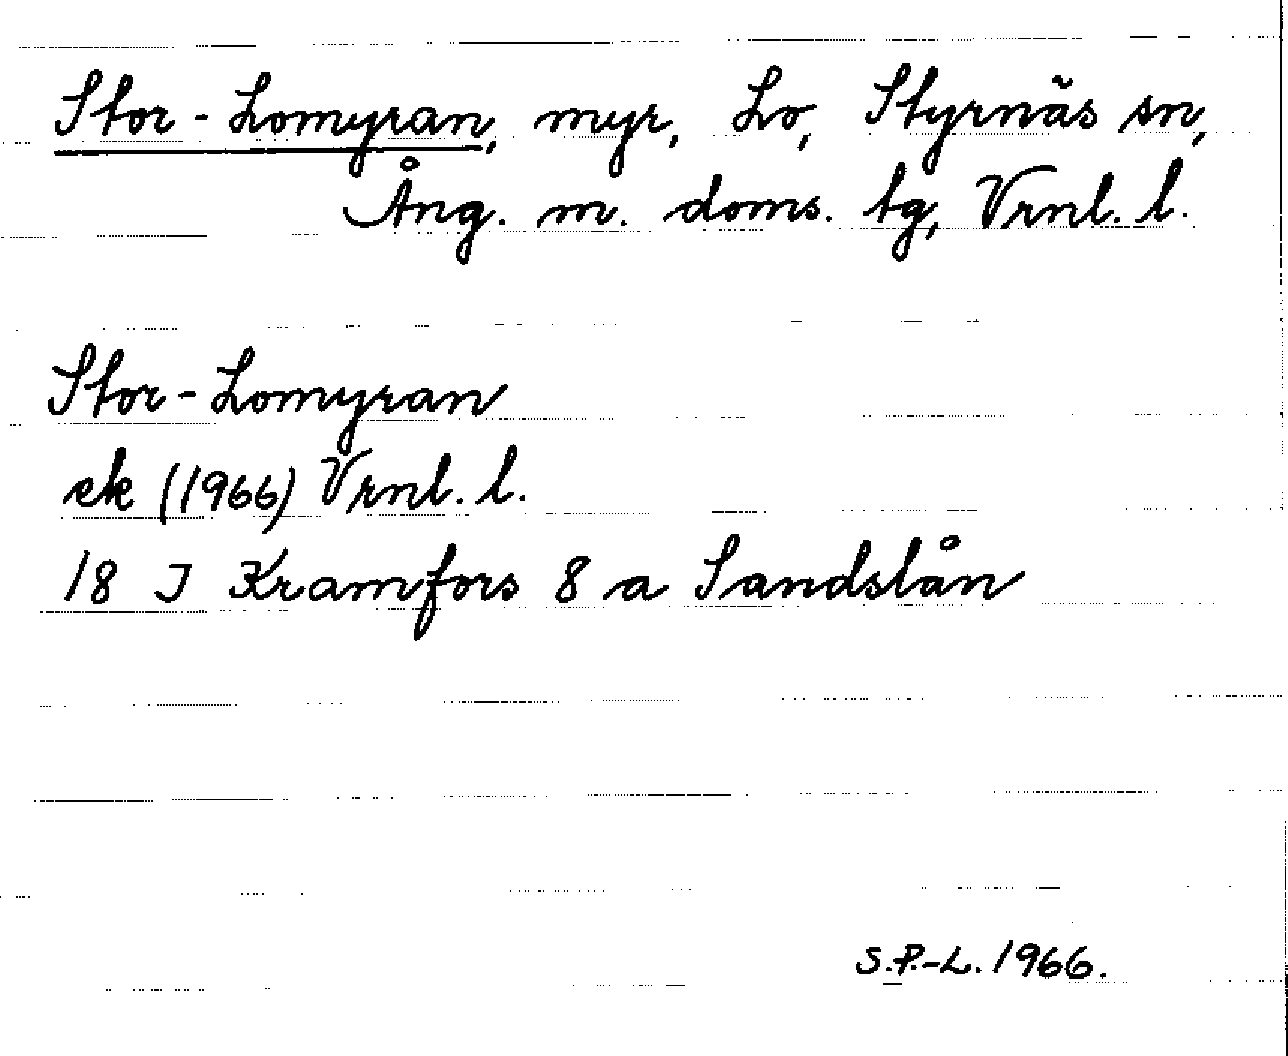 Stor-Lomyran, myr, Lo, Styrnäs sn,
Ång. m. doms. tg, Vrnl. l.
Stor-Lomyran
ek (1966) Vrnl. l.
18 I Kramfors 8 a Sandslån
S.P.-L. 1966.